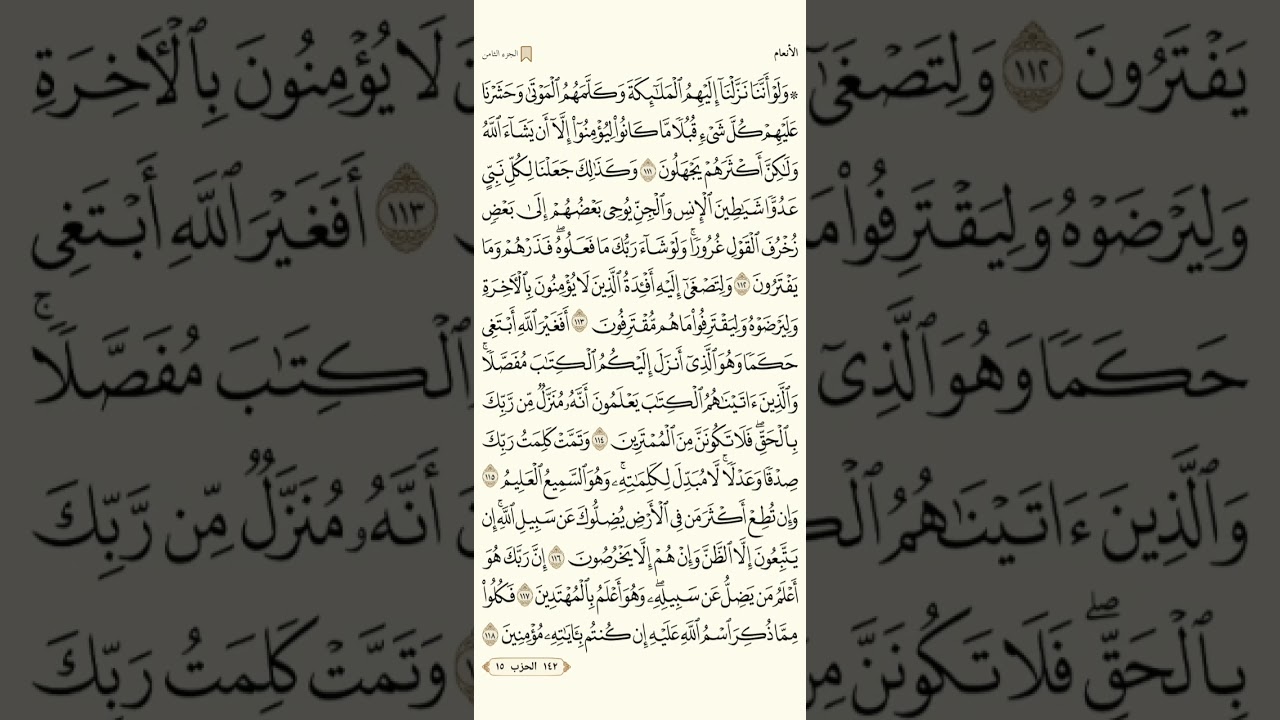 الأنعام
الجزء الثامن
۞ وَلَوْ أَنَّنَا نَزَّلْنَآ إِلَيْهِمُ ٱلْمَلَٰٓئِكَةَ وَكَلَّمَهُمُ ٱلْمَوْتَىٰ وَحَشَرْنَا
عَلَيْهِمْ كُلَّ شَىْءٍ قُبُلًا مَّا كَانُوا۟ لِيُؤْمِنُوٓا۟ إِلَّآ أَن يَشَآءَ ٱللَّهُ
وَلَٰكِنَّ أَكْثَرَهُمْ يَجْهَلُونَ ١١١ وَكَذَٰلِكَ جَعَلْنَا لِكُلِّ نَبِىٍّ
عَدُوًّا شَيَٰطِينَ ٱلْإِنسِ وَٱلْجِنِّ يُوحِى بَعْضُهُمْ إِلَىٰ بَعْضٍ
زُخْرُفَ ٱلْقَوْلِ غُرُورًا ۚ وَلَوْ شَآءَ رَبُّكَ مَا فَعَلُوهُ ۖ فَذَرْهُمْ وَمَا
يَفْتَرُونَ ١١٢ وَلِتَصْغَىٰٓ إِلَيْهِ أَفْـِٔدَةُ ٱلَّذِينَ لَا يُؤْمِنُونَ بِٱلْـَٔاخِرَةِ
وَلِيَرْضَوْهُ وَلِيَقْتَرِفُوا۟ مَا هُم مُّقْتَرِفُونَ ١١٣ أَفَغَيْرَ ٱللَّهِ أَبْتَغِى
حَكَمًا وَهُوَ ٱلَّذِىٓ أَنزَلَ إِلَيْكُمُ ٱلْكِتَٰبَ مُفَصَّلًا ۚ
وَٱلَّذِينَ ءَاتَيْنَٰهُمُ ٱلْكِتَٰبَ يَعْلَمُونَ أَنَّهُۥ مُنَزَّلٌ مِّن رَّبِّكَ
بِٱلْحَقِّ ۖ فَلَا تَكُونَنَّ مِنَ ٱلْمُمْتَرِينَ ١١٤ وَتَمَّتْ كَلِمَتُ رَبِّكَ
صِدْقًا وَعَدْلًا ۚ لَّا مُبَدِّلَ لِكَلِمَٰتِهِۦ ۚ وَهُوَ ٱلسَّمِيعُ ٱلْعَلِيمُ ١١٥
وَإِن تُطِعْ أَكْثَرَ مَن فِى ٱلْأَرْضِ يُضِلُّوكَ عَن سَبِيلِ ٱللَّهِ ۚ إِن
يَتَّبِعُونَ إِلَّا ٱلظَّنَّ وَإِنْ هُمْ إِلَّا يَخْرُصُونَ ١١٦ إِنَّ رَبَّكَ هُوَ
أَعْلَمُ مَن يَضِلُّ عَن سَبِيلِهِۦ ۖ وَهُوَ أَعْلَمُ بِٱلْمُهْتَدِينَ ١١٧ فَكُلُوا۟
مِمَّا ذُكِرَ ٱسْمُ ٱللَّهِ عَلَيْهِ إِن كُنتُم بِـَٔايَٰتِهِۦ مُؤْمِنِينَ ١١٨
١٤٢ الحزب ١٥
يَفْتَرُونَ ١١٢ وَلِتَصْغَىٰٓ
لَا يُؤْمِنُونَ بِٱلْـَٔاخِرَةِ
وَلِيَرْضَوْهُ وَلِيَقْتَرِفُوا۟
١١٣ أَفَغَيْرَ ٱللَّهِ أَبْتَغِى
حَكَمًا وَهُوَ ٱلَّذِىٓ
ٱلْكِتَٰبَ مُفَصَّلًا ۚ
وَٱلَّذِينَ ءَاتَيْنَٰهُمُ
أَنَّهُۥ مُنَزَّلٌ مِّن رَّبِّكَ
بِٱلْحَقِّ ۖ فَلَا تَكُونَنَّ
وَتَمَّتْ كَلِمَتُ رَبِّكَ